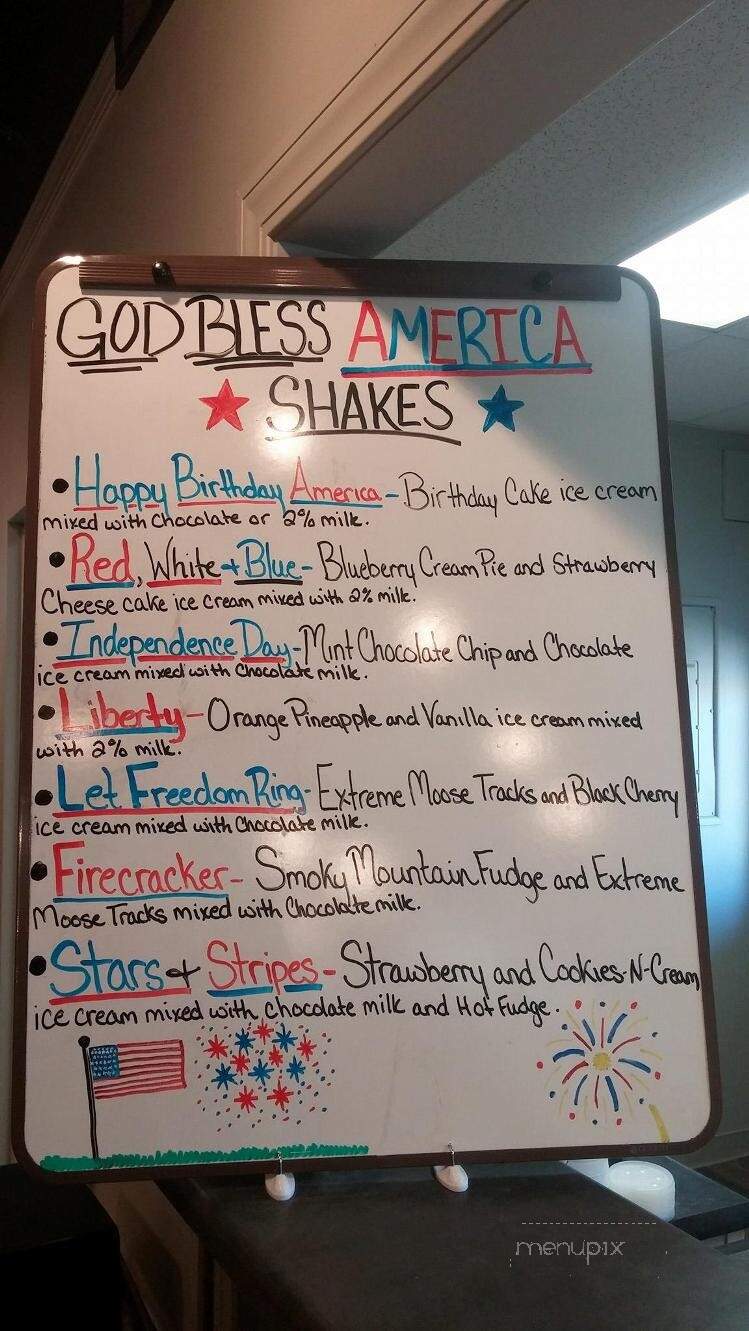 GOD BLESS AMERICA
SHAKES
• Happy Birthday America - Birthday Cake ice cream
mixed with Chocolate or 2% milk.
• Red, White + Blue - Blueberry Cream Pie and Strawberry
Cheese cake ice cream mixed with 2% milk.
• Independence Day - Mint Chocolate Chip and Chocolate
ice cream mixed with Chocolate milk.
• Liberty - Orange Pineapple and Vanilla ice cream mixed
with 2% milk.
• Let Freedom Ring - Extreme Moose Tracks and Black Cherry
ice cream mixed with Chocolate milk.
• Firecracker - Smoky Mountain Fudge and Extreme
Moose Tracks mixed with Chocolate milk.
• Stars + Stripes - Strawberry and Cookies-N-Cream
ice cream mixed with chocolate milk and Hot Fudge.
menupix